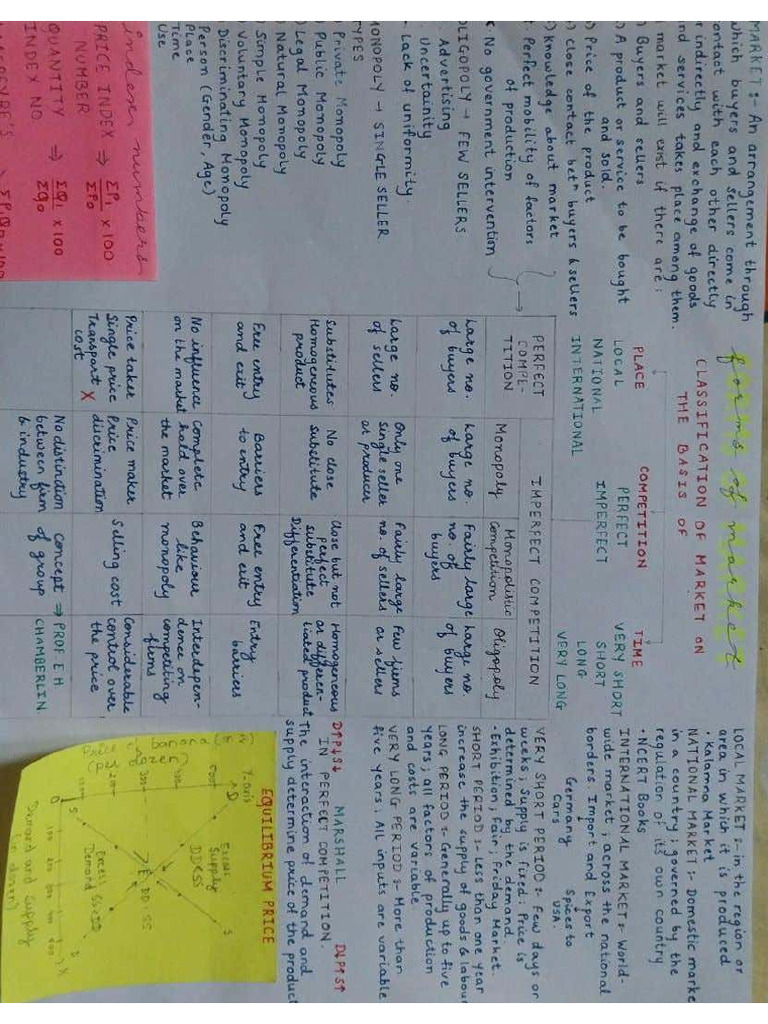 MARKET :- An arrangement through
which buyers and sellers come in
contact with each other directly
or indirectly and exchange of goods
and services takes place among them.
market will exist if there are :
Buyers and sellers
A product or service to be bought
and sold.
Price of the product
Close contact betn buyers & sellers
Knowledge about market
Perfect mobility of factors
of production
No government intervention
OLIGOPOLY → FEW SELLERS
Advertising
Uncertainity
Lack of uniformity
MONOPOLY → SINGLE SELLER
TYPES
Private Monopoly
Public Monopoly
Legal Monopoly
Natural Monopoly
Simple Monopoly
Voluntary Monopoly
Discriminating Monopoly
Person (Gender, Age)
Place
Time
Use
index numbers
PRICE INDEX ⇒ ΣP1/ΣP0 x 100
NUMBER
QUANTITY ⇒ ΣQ1/Σq0 x 100
INDEX NO
forms of market
CLASSIFICATION OF MARKET ON
THE BASIS OF
PLACE COMPETITION TIME
LOCAL PERFECT VERY SHORT
NATIONAL IMPERFECT SHORT
INTERNATIONAL LONG
VERY LONG
PERFECT COMPE-TITION IMPERFECT COMPETITION
Monopoly Monopolistic Competition Oligopoly
Large no. of buyers Large no. of buyers Fairly large no. of buyers Large no. of buyers
Large no. of sellers Only one single seller or producer Fairly large no. of sellers Few firms or sellers
Substitutes Homogeneous product No close substitute Close but not perfect substitute Differentiation Homogeneous or differen-tiated product
Free entry and exit Barriers to entry Free entry and exit Entry barriers
No influence on the market Complete hold over the market Behaviour like monopoly Interdepen-dence on competiting firms
Price taker Single price Transport X cost Price maker Price discrimination Selling cost Considerable control over the price
No distinction between firm & industry Concept of group ⇒ PROF E H CHAMBERLIN
LOCAL MARKET :- in the region or
area in which it is produced
• Kalamna Market
NATIONAL MARKET :- Domestic marke
in a country ; governed by the
regulation of its own country
• NCERT Books
INTERNATIONAL MARKET :- World-
wide market ; across the national
borders. Import and Export
Germany Spices to
Cars USA.
VERY SHORT PERIOD :- Few days or
weeks ; Supply is fixed ; Price is
determined by the demand.
• Exhibition, Fair, Friday Market.
SHORT PERIOD :- Less than one year
increase the supply of goods & labour
LONG PERIOD :- Generally up to five
years ; all factors of production
and costs are variable.
VERY LONG PERIOD :- More than
five years ; All inputs are variable
MARSHALL
D↑P↓S↓ D↓P↑S↑
IN PERFECT COMPETITION.
The interaction of demand and
supply determine price of the product
EQUILIBRIUM PRICE
Y-axis
D S
Excess
Supply
DD<SS
E DD=SS
Demand
S D
Demand and supply